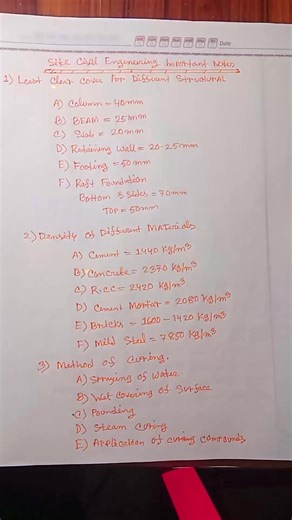 Date
Site Civil Engineering Important Notes
1) Least Clear Cover For Different Structural
A) Column - 40mm
B) BEAM = 25mm
C) Slab = 20mm
D) Retaining Wall = 20-25mm
E) Footing = 50mm
F) Raft Foundation
Bottom & Sides = 70mm
TOP = 50mm
2) Density of Different Materials
A) Cement = 1440 Kg/m³
B) Concrete = 2370 Kg/m³
C) R.C.C = 2420 Kg/m³
D) Cement Mortar = 2080 Kg/m³
E) Bricks = 1600 - 1420 Kg/m³
F) Mild Steel = 7850 Kg/m³
3) Method of Curing.
A) Straying of Water
B) Wet Covering of Surface
C) Pounding
D) Steam Curing
E) Application of Curing Compounds